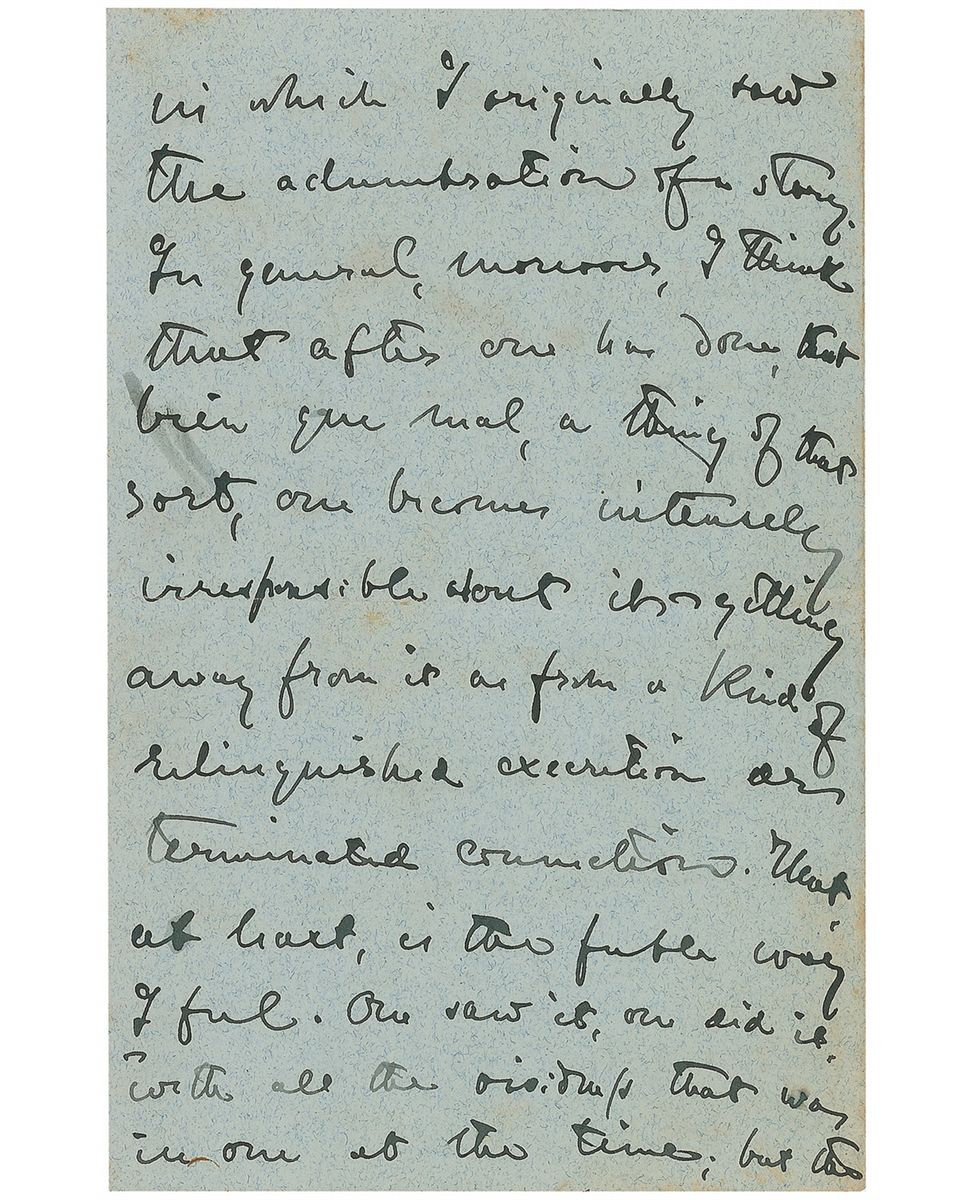 in which I originally saw
the adumbration of a story.
In general, moreover, I think
that after one has done, tant
bien que mal, a thing of that
sort, one becomes intensely
irresponsible about it—getting
away from it as from a kind of
relinquished execution or
terminated connection. That,
at least, is the futile way
I feel. One saw it, one did it,
with all the vividness that was
in one at the time; but the